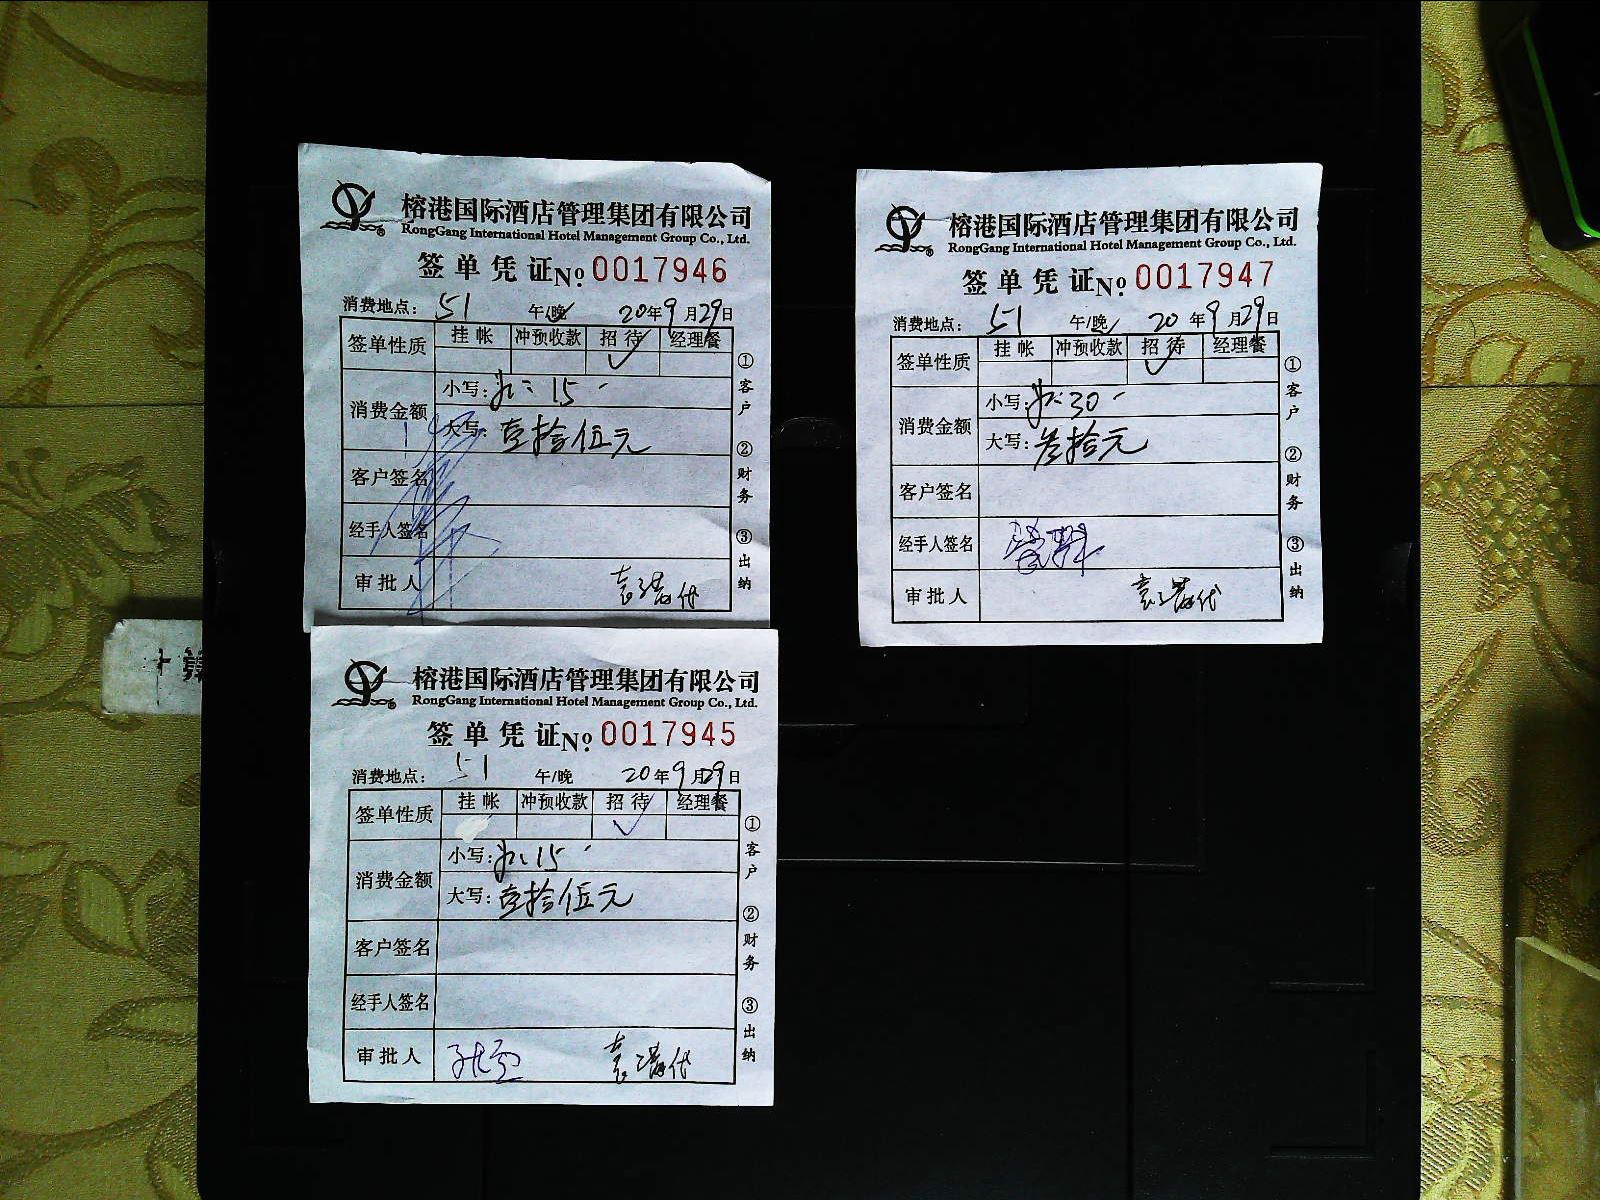 榕港国际酒店管理集团有限公司
RongGang International Hotel Management Group Co., Ltd.
签单凭证 No. 0017946
消费地点: 51 午/晚 20年9月29日
签单性质 挂帐 冲预收款 招待 经理餐
✓
消费金额 小写: 15
大写: 壹拾伍元
客户签名
经手人签名
审批人 代
①客户 ②财务 ③出纳
榕港国际酒店管理集团有限公司
RongGang International Hotel Management Group Co., Ltd.
签单凭证 No. 0017947
消费地点: 51 午/晚 20年9月29日
签单性质 挂帐 冲预收款 招待 经理餐
✓
消费金额 小写: 30
大写: 叁拾元
客户签名
经手人签名
审批人 代
①客户 ②财务 ③出纳
榕港国际酒店管理集团有限公司
RongGang International Hotel Management Group Co., Ltd.
签单凭证 No. 0017945
消费地点: 51 午/晚 20年9月29日
签单性质 挂帐 冲预收款 招待 经理餐
✓
消费金额 小写: 15
大写: 壹拾伍元
客户签名
经手人签名
审批人 代
①客户 ②财务 ③出纳